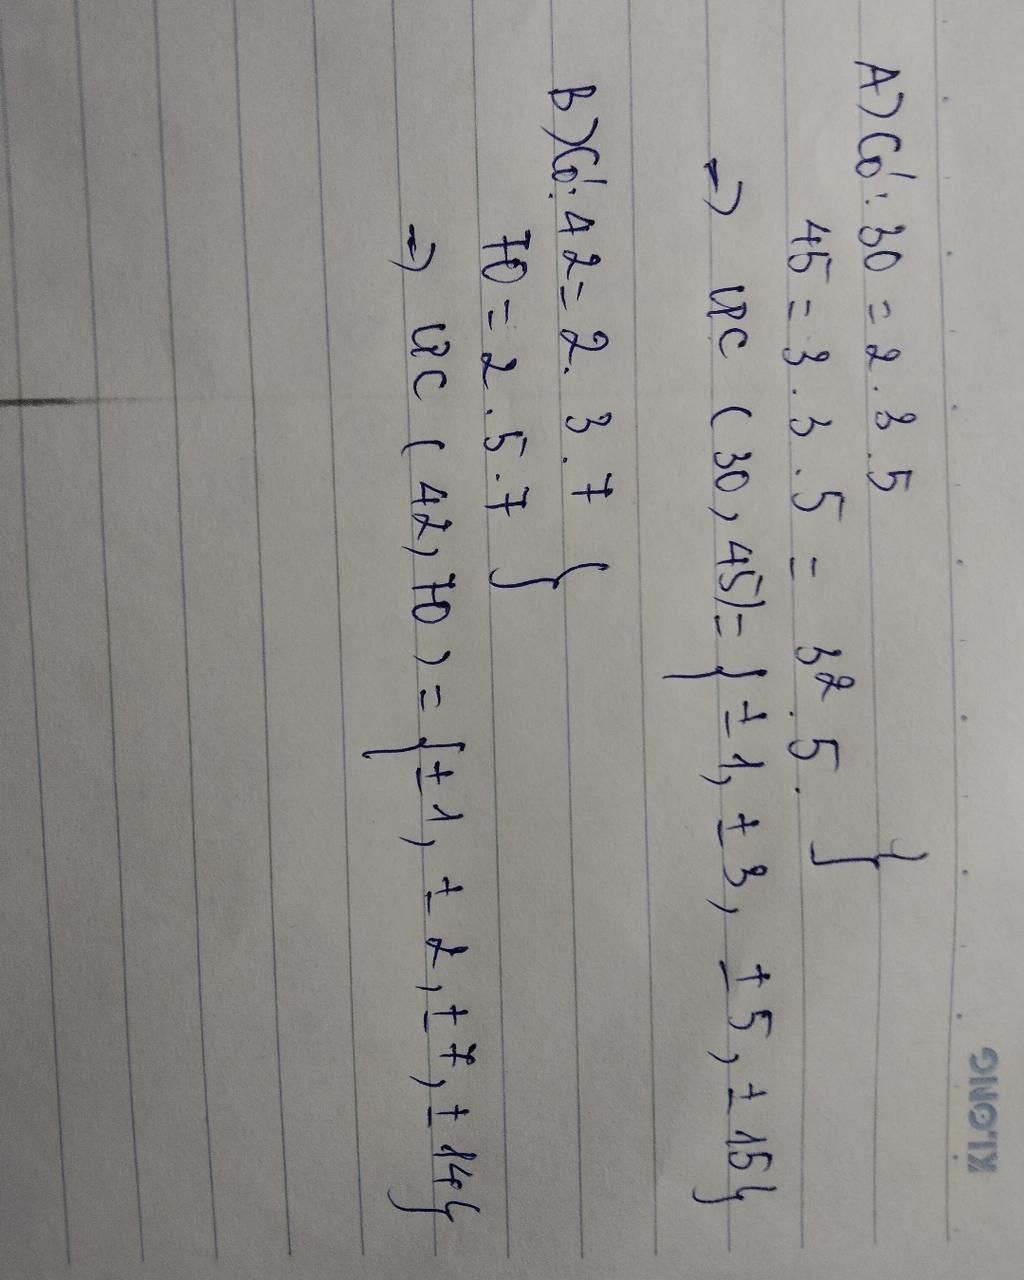 KLONG
A) Có: 30 = 2.3.5
45 = 3.3.5 = 3².5. }
=) ƯC (30, 45) = {±1, ±3, ±5, ±15}
B) Có: 42 = 2.3.7
70 = 2.5.7 }
=) ƯC (42, 70) = {±1, ±2, ±7, ±14}